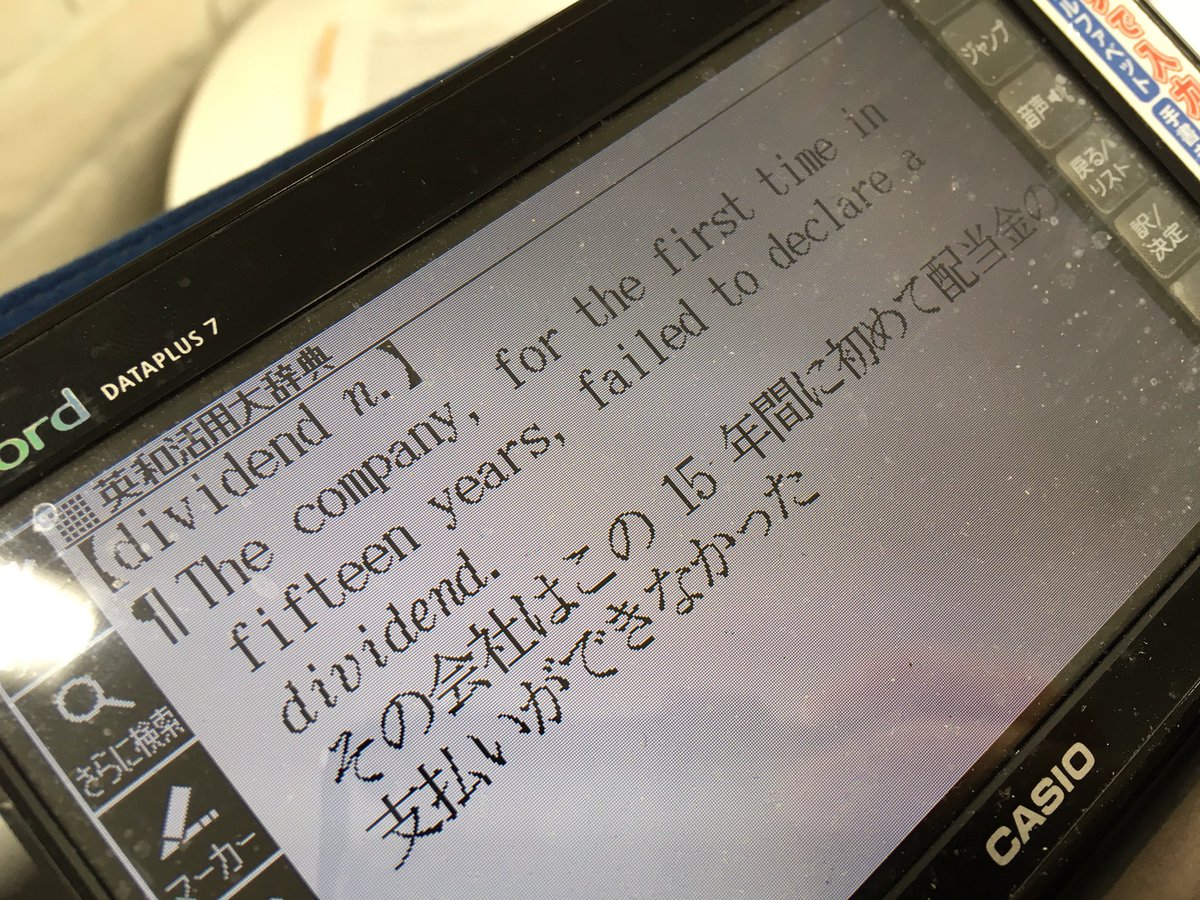 ord DATAPLUS 7
英和活用大辞典
【dividend n.】
¶ The company, for the first time in
fifteen years, failed to declare a
dividend.
その会社はこの 15 年間に初めて配当金の
支払いができなかった
さらに検索
マーカー
ジャンプ
音声
戻る/
リスト
訳/
決定
CASIO